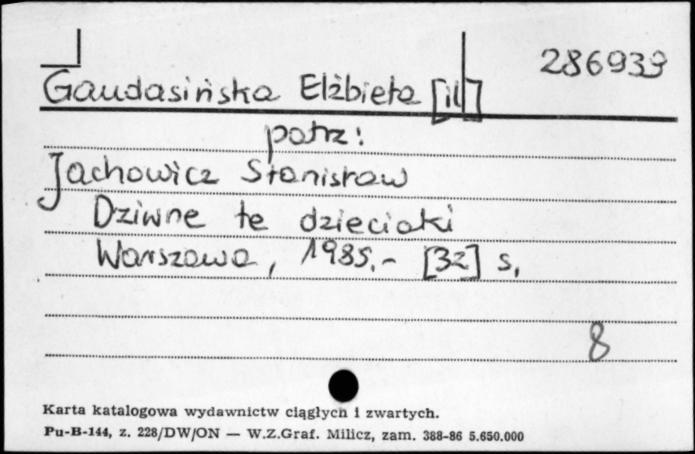 286939
Gaudasińska Elżbieta [il]
patrz:
Jachowicz Stanisław
Dziwne te dzieciaki
Warszawa, 1985.- [32] s.
8
Karta katalogowa wydawnictw ciągłych i zwartych.
Pu-B-144, z. 228/DW/ON — W.Z.Graf. Milicz, zam. 388-86 5.650.000